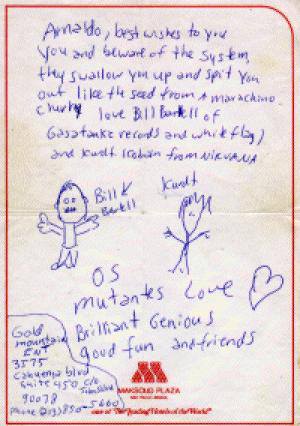 Arnaldo, best wishes to you
you and beware of the system,
they swallow you up and spit you
out like the seed from a marachino
cherry love Bill Bartell of
Gasatanka records and white flag)
and Kurdt Kobain from NIRVANA
Bill Bartell
Kurdt
OS
mutantes Love
Brilliant Genious
good fun and friends
Gold
mountain
ENT
3575
Cahuenga blvd
suite 450 c/o
90078
Phone (213) 850-5660
MAKSOUD PLAZA
SÃO PAULO, BRASIL
one of "The Leading Hotels of the World"